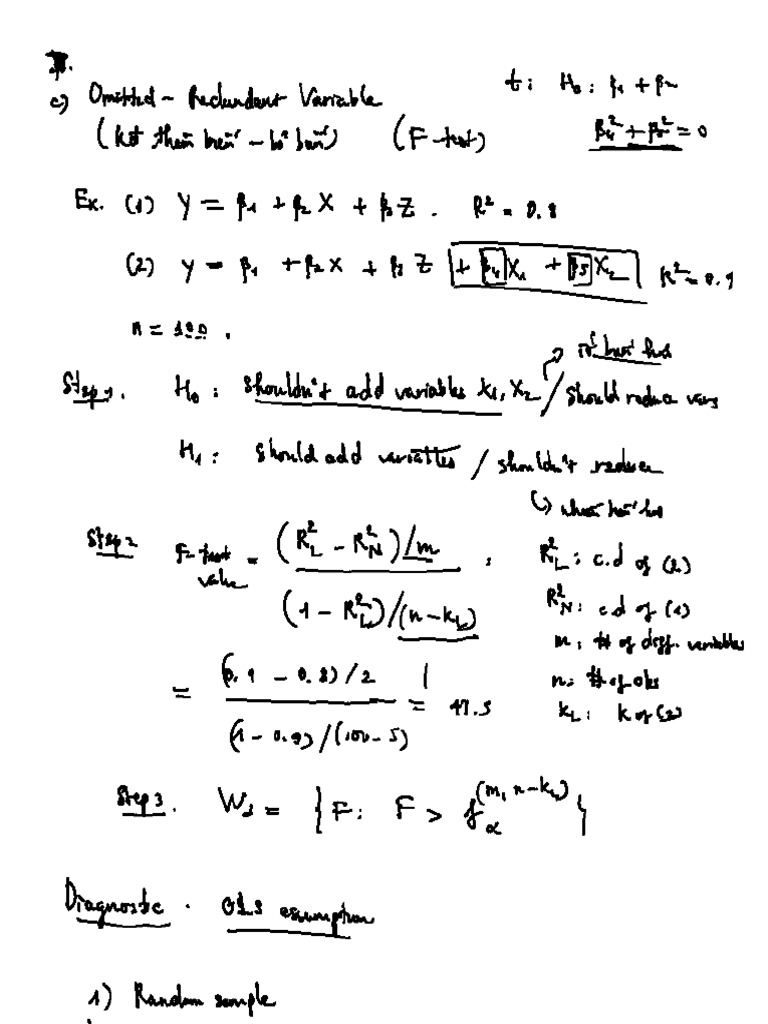 c) Omitted - Redundant Variable
(kđ thêm biến - bỏ biến) (F-test)
t: H₀: β₁ + β₂
β₄² + β₅² = 0
Ex. (1) Y = β₁ + β₂ X + β₃ Z . R² = 0.8
(2) Y = β₁ + β₂ X + β₃ Z + β₄ X₁ + β₅ X₂ R² = 0.9
n = 100 .
Step 1. H₀ : shouldn't add variables X₁, X₂ / should reduce vars
H₁ : should add variables / shouldn't reduce
Step 2 F-test value = (R²_L - R²_N)/m / (1 - R²_L)/(n - k_L) .
R²_L : c.d of (2)
R²_N : c.d of (1)
m : # of diff. variables
n : # of obs
k_L : k of (2)
= (0.9 - 0.8)/2 / (1 - 0.9)/(100 - 5) = 47.5
Step 3. W_α = { F : F > f_α^(m, n-k_L) }
Diagnostic . OLS assumption
1) Random sample